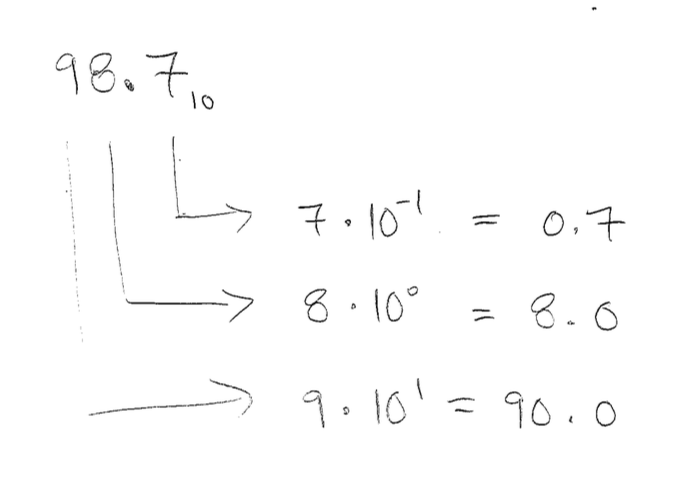 98.7₁₀
7 · 10⁻¹ = 0.7
8 · 10⁰ = 8.0
9 · 10¹ = 90.0